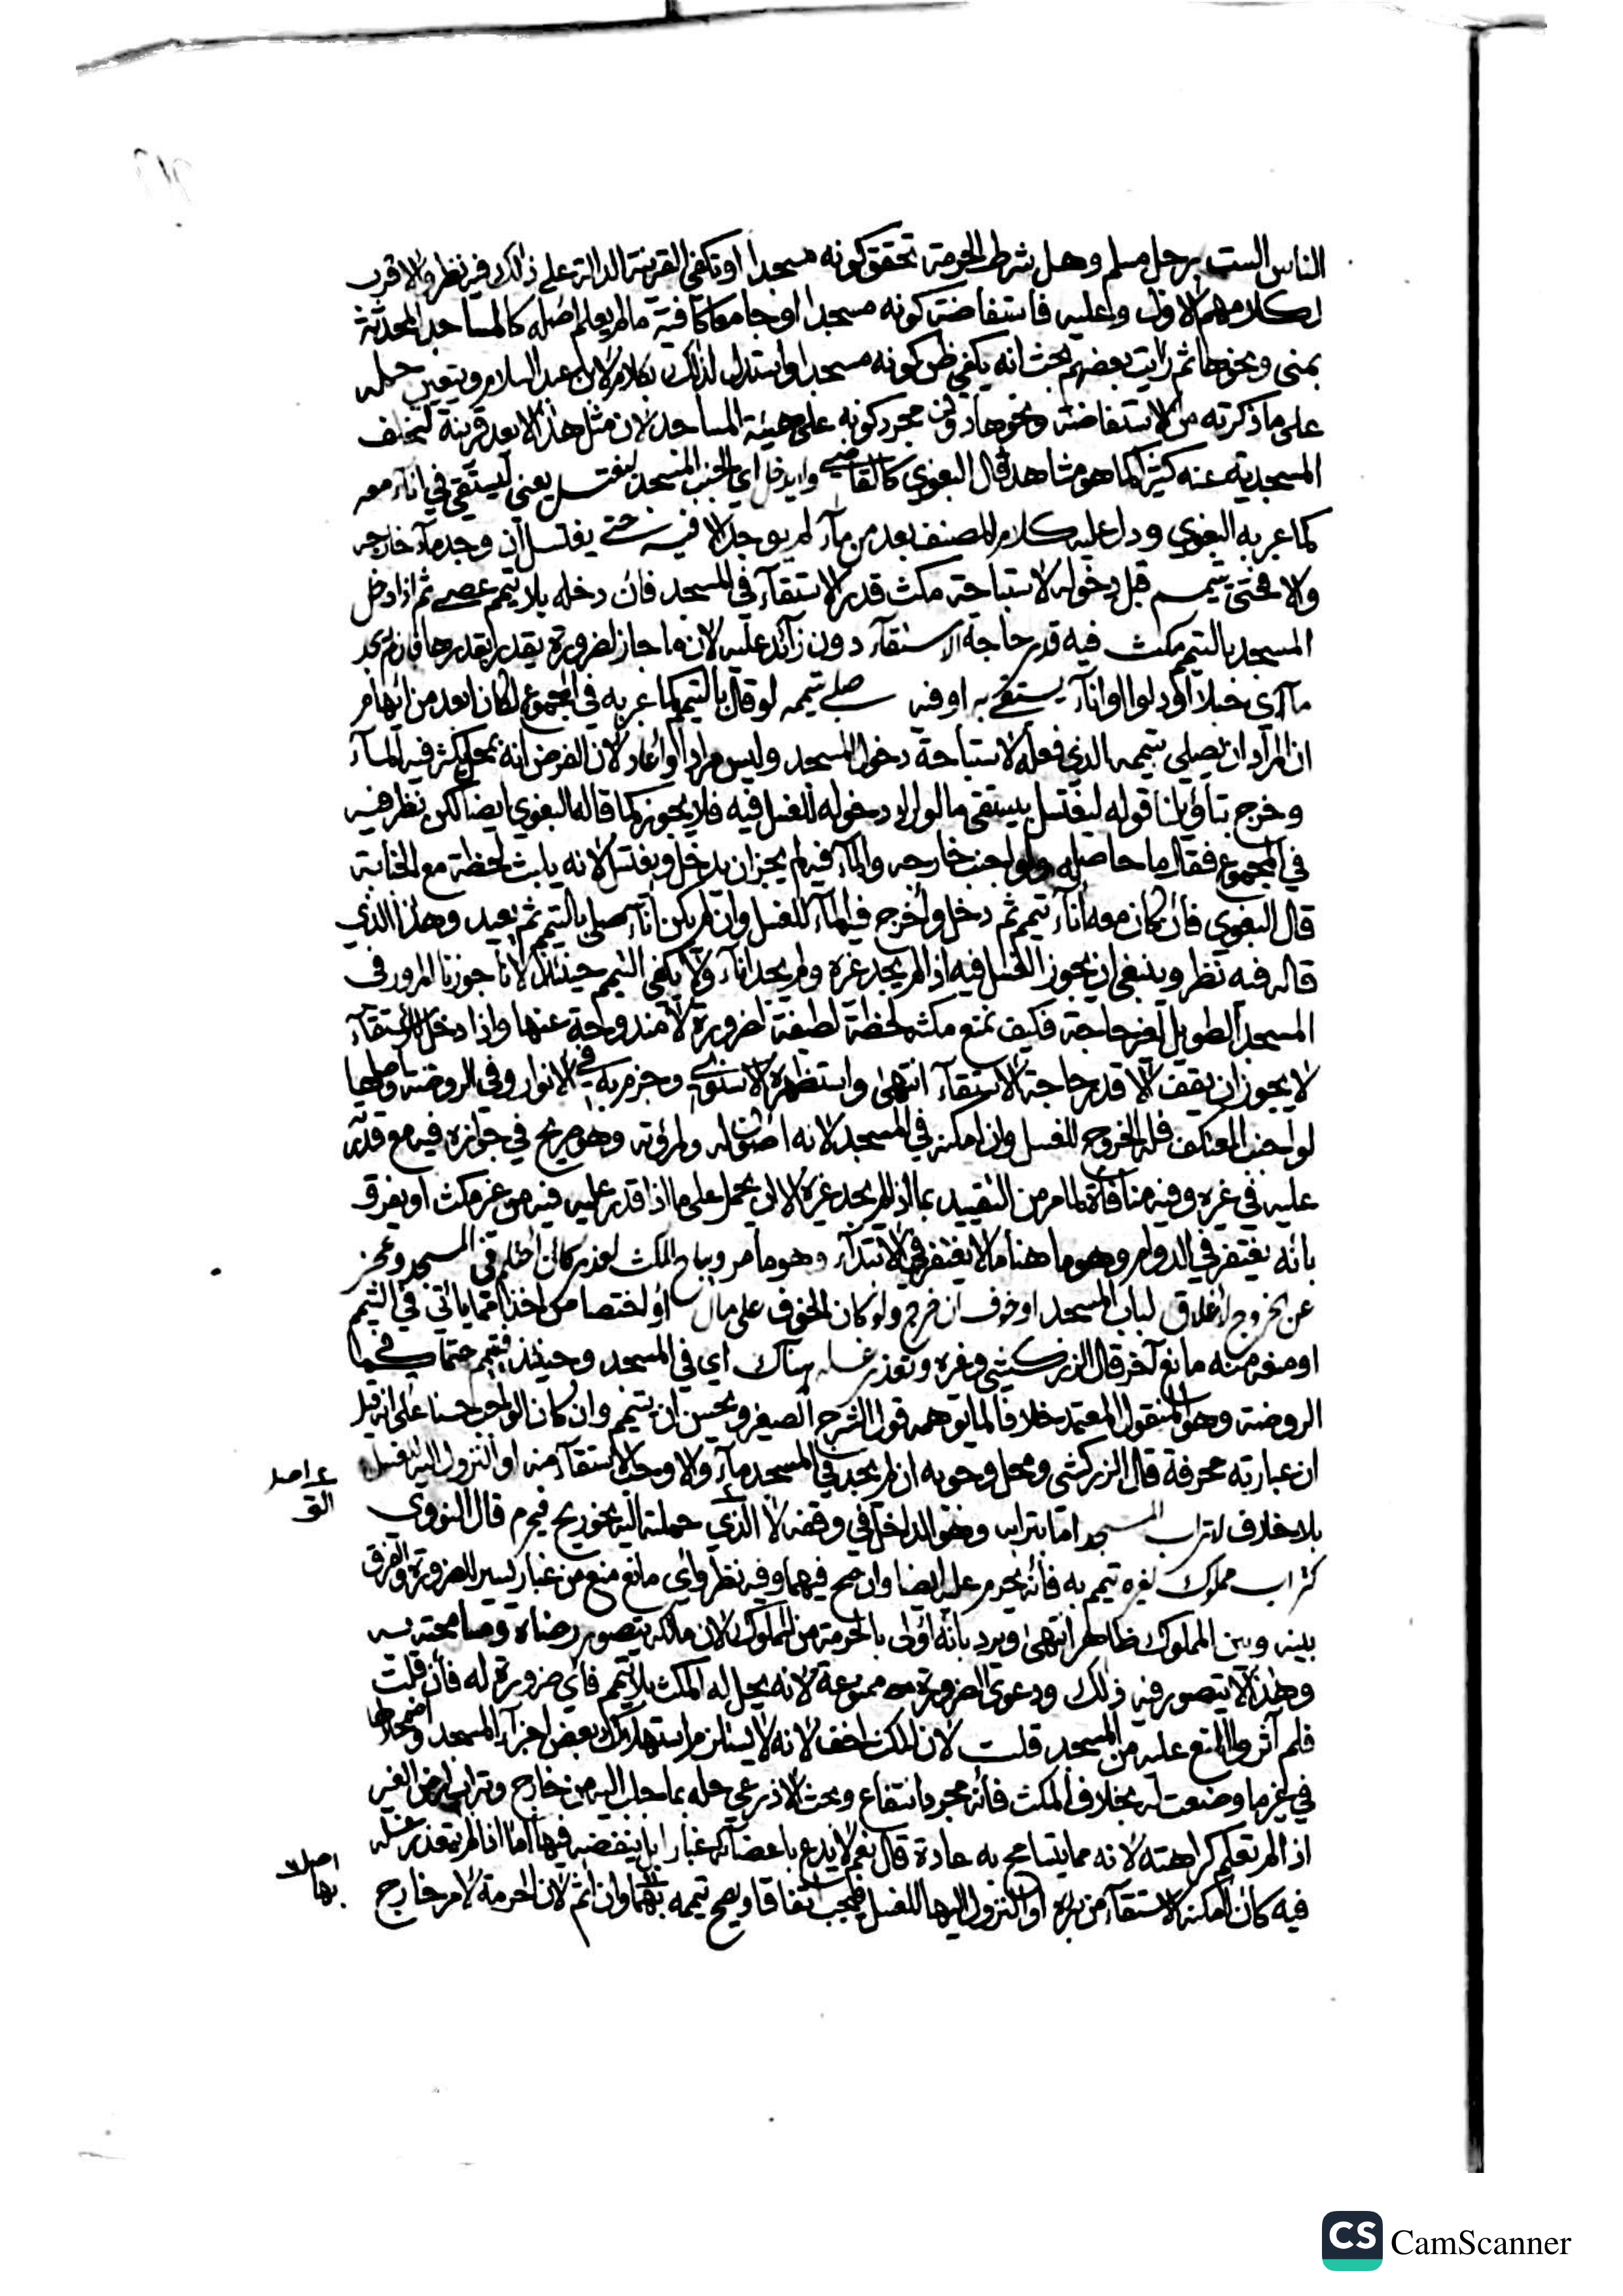 الناس الست برجل مسلم وهل شرط الحرمة تحقق كونه مسجدا او تكفي القرينة الدالة على ذلك فيه نظر والاقرب
لكلامهم الاول وعليه فاستفاضة كونه مسجدا او جامعا كافية ما لم يعلم اصله كالمساجد المحدثة
بمنى ونحوها ثم رايت بعضهم بحث انه يكفي ظن كونه مسجدا واستدل لذلك بكلام لابن عبد السلام ويتعين حمله
على ما ذكرته من الاستفاضة ونحوها دون مجرد كونه على هيئة المساجد لان مثل هذا لا يعد قرينة لتخلف
المسجدية عنه كثيرا كما هو مشاهد قال البغوي كالقاضي ولا يدخل اي الجنب المسجد ليغتسل يعني ليستقي في اناء معه
كما عبر به البغوي ودل عليه كلام المصنف بعد من ماء لم يوجد الا فيه حتى يغتسل ان وجد ماء خارجه
والا فحتى يتيمم قبل دخوله لاستباحة مكث قدر الاستقاء في المسجد فان دخله بلا تيمم عصى ثم اذا دخل
المسجد بالتيمم مكث فيه قدر حاجة الاستقاء دون زائد عليه لان ما جاز لضرورة يقدر بقدرها فان لم يجد
ما اي حبلا او دلوا او اناء يستقي به او فيه صلى بتيممه لو قال بالتيمم كما عبر به في المجموع لكان ابعد من ايهام
ان المراد ان يصلي بتيممه الذي فعله لاستباحة دخول المسجد وليس مرادا واعاد لان الفرض انه بمحل يكثر فيه الماء
وخرج بتاويلنا قوله ليغتسل بيستقي ما لو اراد دخوله للغسل فيه فلا يجوز كما قاله البغوي ايضا لكن نظر فيه
في المجموع فقال ما حاصله ولو اجنب خارجه والماء فيه لم يجز ان يدخل ويغتسل لانه يلبث لحظة مع الجنابة
قال البغوي فان كان معه اناء تيمم ثم دخل واخرج فيه الماء للغسل وان لم يكن اناء صلى بالتيمم ثم يعيد وهذا الذي
قاله فيه نظر وينبغي ان يجوز الغسل فيه اذا لم يجد غيره ولم يجد اناء ولا يكفي التيمم حينئذ لانا جوزنا المرور في
المسجد الطويل لغير حاجة فكيف نمنع مكثه لحظة لطيفة لضرورة لا مندوحة عنها واذا دخل للاستقاء
لا يجوز ان يقف الا قدر حاجة الاستقاء انتهى واستظهره الاسنوي وجزم به في الانوار وفي الروضة واصلها
لو اجنب المعتكف فله الخروج للغسل وان امكنه في المسجد لانه اصون له ولمروته وهو صريح في جوازه فيه مع قدرته
عليه في غيره وفيه منافاة لما مر من التقييد بما اذا لم يجد غيره الا ان يحمل على ما اذا قدر عليه فيه من غير مكث او يفرق
بانه يغتفر في الدوام وهو ما هنا ما لا يغتفر في الابتداء وهو ما مر ويباح المكث لعذر كان احتلم في المسجد وعجز
عن خروج لاغلاق لباب المسجد او خوف ان خرج ولو كان الخوف على مال او اختصاص اخذا مما ياتي في التيمم
او منعه منه مانع آخر قال الزركشي وغيره وتعذر غسله هناك اي في المسجد وحينئذ فيتيمم حتما كما في
الروضة وهو المنقول المعتمد خلافا لما يوهمه قول الشرح الصغير ويحسن ان يتيمم وان كان الواجب حسنا على انه قيل
ان عبارته محرفة قال الزركشي ومحل وجوبه ان لم يجد في المسجد ماء والا وجب الاستقاء منه او النزول اليه للغسل
بلا خلاف لتراب المسجد اما بترابه وهو الداخل في وقفه لا الذي حملته اليه نحو ريح فيحرم قال النووي
كتراب مملوك لغيره تيمم به فانه يحرم عليه ايضا وان صح فيهما وفيه نظر واي مانع منع من غبار يسير للضرورة والفرق
بينه وبين المملوك ظاهر انتهى ويرد بانه اولى بالحرمة من المملوك لان مالكه يتصور رضاه ومسامحته به
وهذا لا يتصور فيه ذلك ودعوى الضرورة ممنوعة لانه يحل له المكث بلا تيمم فاي ضرورة له فان قلت
فلم آثروا المنع عليه من المسجد قلت لان المكث اخف لانه لا يستلزم استهلاك بعض اجزاء المسجد واضمحلالها
في غير ما وضعت له بخلاف المكث فانه مجرد انتفاع وبحث الاذرعي حله بما جلب اليه من خارج وتراب ارض الغير
اذا لم تعلم كراهته لانه مما يتسامح به عادة قال نعم لا يدع باعضائه غبارا بل ينفضه فيها اما اذا لم يتعذر غسله
فيه كان امكنه الاستقاء من بئره او النزول اليها للغسل فيجب اتفاقا ويصح تيممه بهما وان اثم لان الحرمة لامر خارج
CS CamScanner